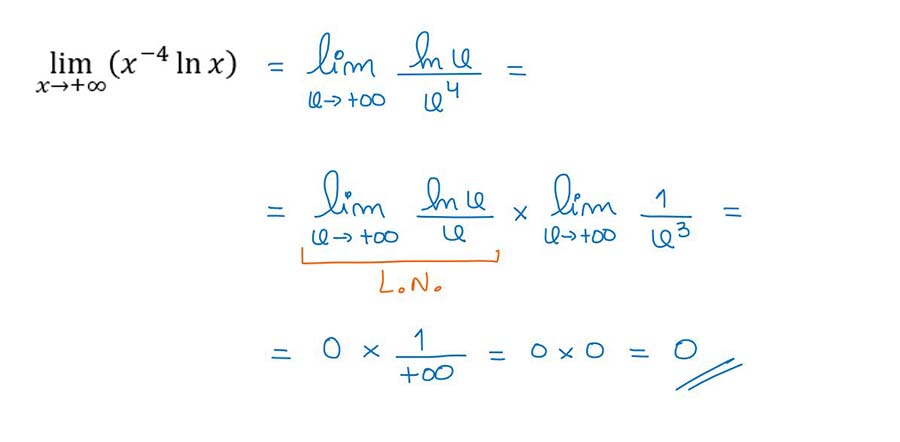 lim x→+∞ (x⁻⁴ ln x) = lim x→+∞ ln x / x⁴ =
= lim x→+∞ ln x / x × lim x→+∞ 1 / x³ =
L.N.
= 0 × 1 / +∞ = 0 × 0 = 0